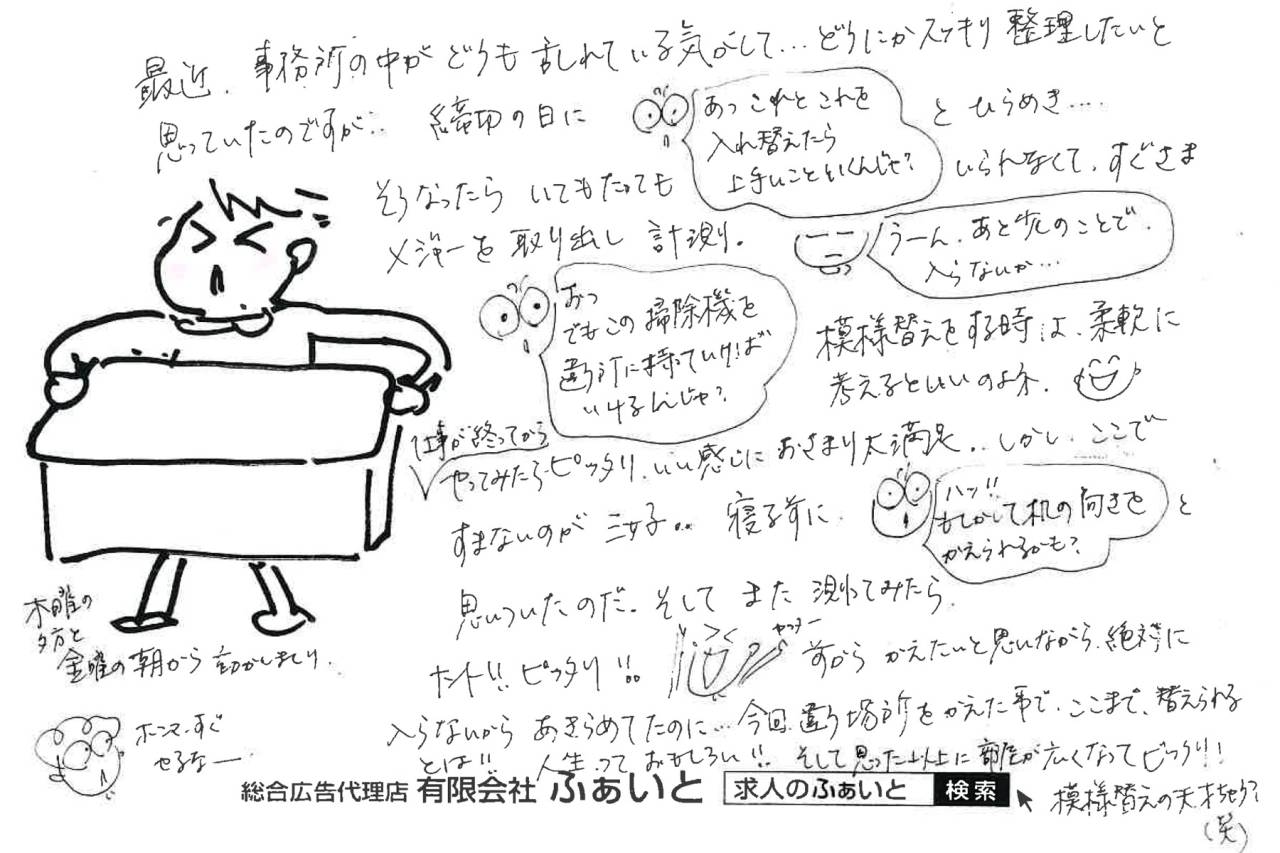 最近、事務所の中がどうも乱れている気がして…どうにかスッキリ整理したいと
思っていたのですが… 締切の日に
あっ これと これを
入れ替えたら
上手いこといくんじゃ？
と ひらめき….
そうなったら いてもたっても
いられなくて、すぐさま
メジャーを 取り出し 計測。
うーん、あと少しのことで、
入らないか…
おっ
でもこの掃除機を
違う所に持っていけば
いけるんじゃ？
模様替えをする時は、柔軟に
考えるといいのよネ。
仕事が終ってから
やってみたらピッタリ、いい感じにおさまり大満足..しかし、ここで
すまないのが 三女子.. 寝る前に、
ハッ!!
もしかして机の向きを
かえられるかも？
と
思いついたのだ。そして また 測ってみたら、
ナント!! ピッタリ!!
ヤッター
前から かえたいと思いながら、絶対に
入らないから あきらめてたのに…今回、違う場所をかえた事で、ここまで、替えられる
とは!! 人生って おもしろい!! そして思った以上に 部屋が広くなってビックリ!!
模様替えの天才ちゃう？
(笑)
木曜の
夕方と
金曜の朝から 動かしまくり.
ホンマ、すぐ
やるなー
総合広告代理店 有限会社 ふぁいと 求人のふぁいと 検索